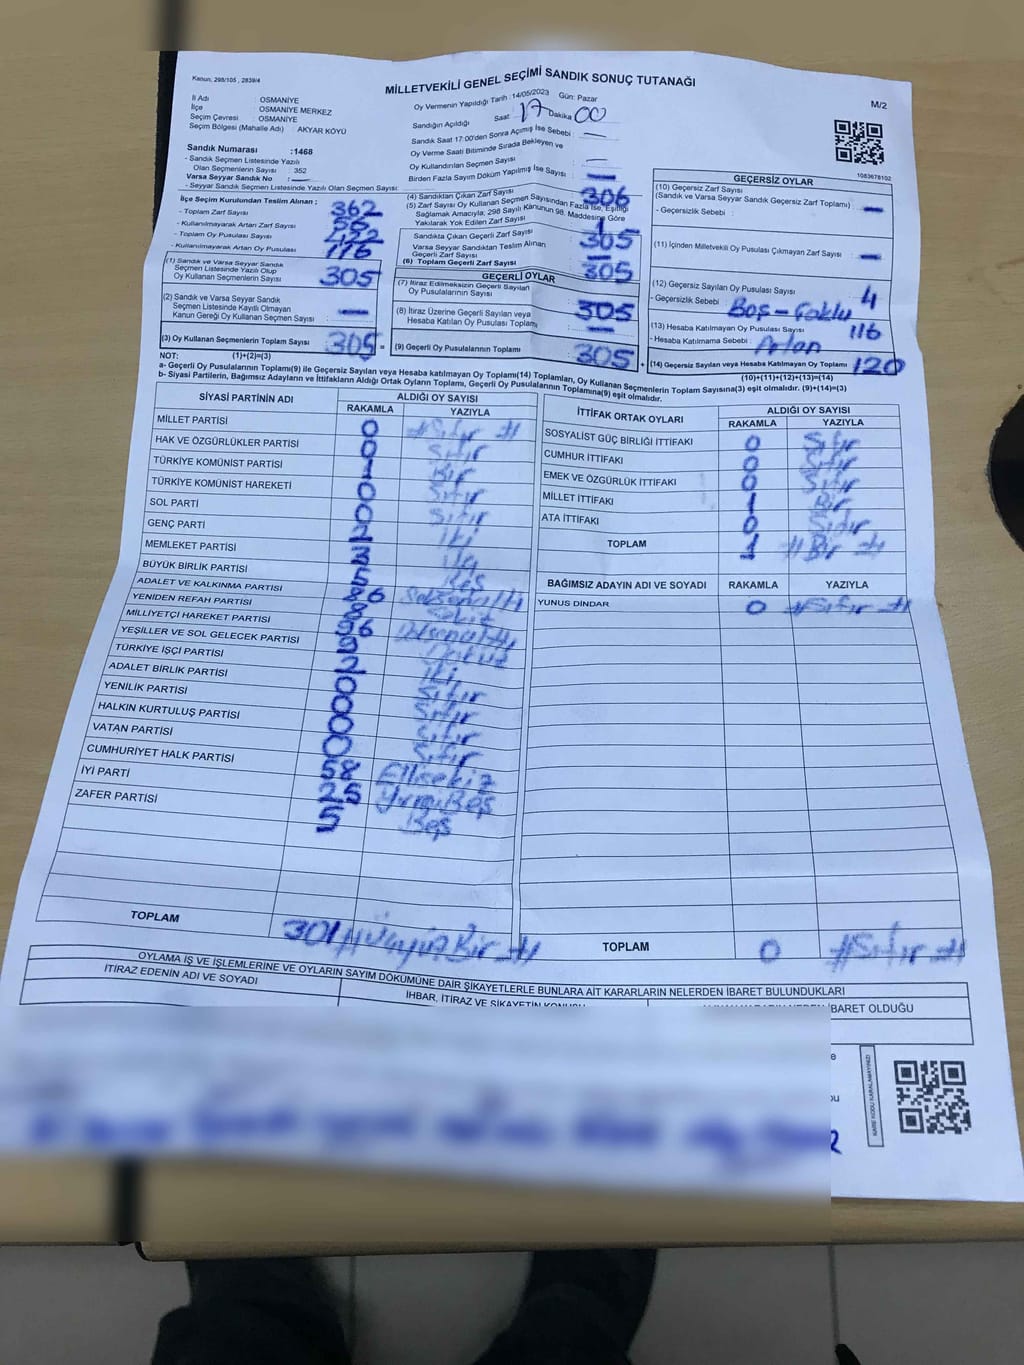 Kanun, 298/105 , 2839/4
MİLLETVEKİLİ GENEL SEÇİMİ SANDIK SONUÇ TUTANAĞI
M/2
İl Adı : OSMANİYE
İlçe : OSMANİYE MERKEZ
Seçim Çevresi : OSMANİYE
Seçim Bölgesi (Mahalle Adı) : AKYAR KÖYÜ
Sandık Numarası :1468
- Sandık Seçmen Listesinde Yazılı
Olan Seçmenlerin Sayısı : 352
Varsa Seyyar Sandık No :
- Seyyar Sandık Seçmen Listesinde Yazılı Olan Seçmen Sayısı:
Oy Vermenin Yapıldığı Tarih :14/05/2023 Gün: Pazar
Sandığın Açıldığı Saat : 17 Dakika 00
Sandık Saat 17:00'den Sonra Açılmış İse Sebebi : —
Oy Verme Saati Bitiminde Sırada Bekleyen ve
Oy Kullandırılan Seçmen Sayısı : —
Birden Fazla Sayım Döküm Yapılmış İse Sayısı : —
1083678102
İlçe Seçim Kurulundan Teslim Alınan ;
- Toplam Zarf Sayısı : 362
- Kullanılmayarak Artan Zarf Sayısı : 56
- Toplam Oy Pusulası Sayısı : 422
- Kullanılmayarak Artan Oy Pusulası : 116
(1) Sandık ve Varsa Seyyar Sandık
Seçmen Listesinde Yazılı Olup
Oy Kullanan Seçmenlerin Sayısı : 305
(2) Sandık ve Varsa Seyyar Sandık
Seçmen Listesinde Kayıtlı Olmayan
Kanun Gereği Oy Kullanan Seçmen Sayısı : —
(3) Oy Kullanan Seçmenlerin Toplam Sayısı : 305 =
(4) Sandıktan Çıkan Zarf Sayısı : 306
(5) Zarf Sayısı Oy Kullanan Seçmen Sayısından Fazla İse, Eşitliği
Sağlamak Amacıyla; 298 Sayılı Kanunun 98. Maddesine Göre
Yakılarak Yok Edilen Zarf Sayısı : 1
Sandıkta Çıkan Geçerli Zarf Sayısı : 305
Varsa Seyyar Sandıktan Teslim Alınan
Geçerli Zarf Sayısı : —
(6) Toplam Geçerli Zarf Sayısı : 305
GEÇERLİ OYLAR
(7) İtiraz Edilmeksizin Geçerli Sayılan
Oy Pusulalarının Sayısı : 305
(8) İtiraz Üzerine Geçerli Sayılan veya
Hesaba Katılan Oy Pusulası Toplamı : —
(9) Geçerli Oy Pusulalarının Toplamı : 305 +
GEÇERSİZ OYLAR
(10) Geçersiz Zarf Sayısı
(Sandık ve Varsa Seyyar Sandık Geçersiz Zarf Toplamı) : —
- Geçersizlik Sebebi :
(11) İçinden Milletvekili Oy Pusulası Çıkmayan Zarf Sayısı : —
(12) Geçersiz Sayılan Oy Pusulası Sayısı : 4
- Geçersizlik Sebebi : Boş - Çoklu
(13) Hesaba Katılmayan Oy Pusulası Sayısı : 116
- Hesaba Katılmama Sebebi : Artan
(14) Geçersiz Sayılan veya Hesaba Katılmayan Oy Toplamı 120
NOT: (1)+(2)=(3) (10)+(11)+(12)+(13)=(14)
a- Geçerli Oy Pusulalarının Toplamı(9) ile Geçersiz Sayılan veya Hesaba katılmayan Oy Toplamı(14) Toplamları, Oy Kullanan Seçmenlerin Toplam Sayısına(3) eşit olmalıdır. (9)+(14)=(3)
b- Siyasi Partilerin, Bağımsız Adayların ve İttifakların Aldığı Ortak Oyların Toplamı, Geçerli Oy Pusulalarının Toplamına(9) eşit olmalıdır.
SİYASİ PARTİNİN ADI ALDIĞI OY SAYISI
RAKAMLA YAZIYLA
MİLLET PARTİSİ 0 # Sıfır #
HAK VE ÖZGÜRLÜKLER PARTİSİ 0 Sıfır
TÜRKİYE KOMÜNİST PARTİSİ 1 Bir
TÜRKİYE KOMÜNİST HAREKETİ 0 Sıfır
SOL PARTİ 0 Sıfır
GENÇ PARTİ 2 İki
MEMLEKET PARTİSİ 3 Üç
BÜYÜK BİRLİK PARTİSİ 5 Beş
ADALET VE KALKINMA PARTİSİ 86 Seksenaltı
YENİDEN REFAH PARTİSİ 8 Sekiz
MİLLİYETÇİ HAREKET PARTİSİ 96 Doksanaltı
YEŞİLLER VE SOL GELECEK PARTİSİ 9 Dokuz
TÜRKİYE İŞÇİ PARTİSİ 2 İki
ADALET BİRLİK PARTİSİ 0 Sıfır
YENİLİK PARTİSİ 0 Sıfır
HALKIN KURTULUŞ PARTİSİ 0 Sıfır
VATAN PARTİSİ 0 Sıfır
CUMHURİYET HALK PARTİSİ 58 Ellisekiz
İYİ PARTİ 25 YirmiBeş
ZAFER PARTİSİ 5 Beş
TOPLAM 301 # ÜçyüzBir #
İTTİFAK ORTAK OYLARI ALDIĞI OY SAYISI
RAKAMLA YAZIYLA
SOSYALİST GÜÇ BİRLİĞİ İTTİFAKI 0 Sıfır
CUMHUR İTTİFAKI 0 Sıfır
EMEK VE ÖZGÜRLÜK İTTİFAKI 0 Sıfır
MİLLET İTTİFAKI 1 Bir
ATA İTTİFAKI 0 Sıfır
TOPLAM 1 # Bir #
BAĞIMSIZ ADAYIN ADI VE SOYADI RAKAMLA YAZIYLA
YUNUS DINDAR 0 # Sıfır #
TOPLAM 0 # Sıfır #
OYLAMA İŞ VE İŞLEMLERİNE VE OYLARIN SAYIM DÖKÜMÜNE DAİR ŞİKAYETLERLE BUNLARA AİT KARARLARIN NELERDEN İBARET BULUNDUKLARI
İTİRAZ EDENİN ADI VE SOYADI
İHBAR, İTİRAZ VE ŞİKAYETİN KONUSU
İBARET OLDUĞU
KARE KODU KARALAMAYINIZ!